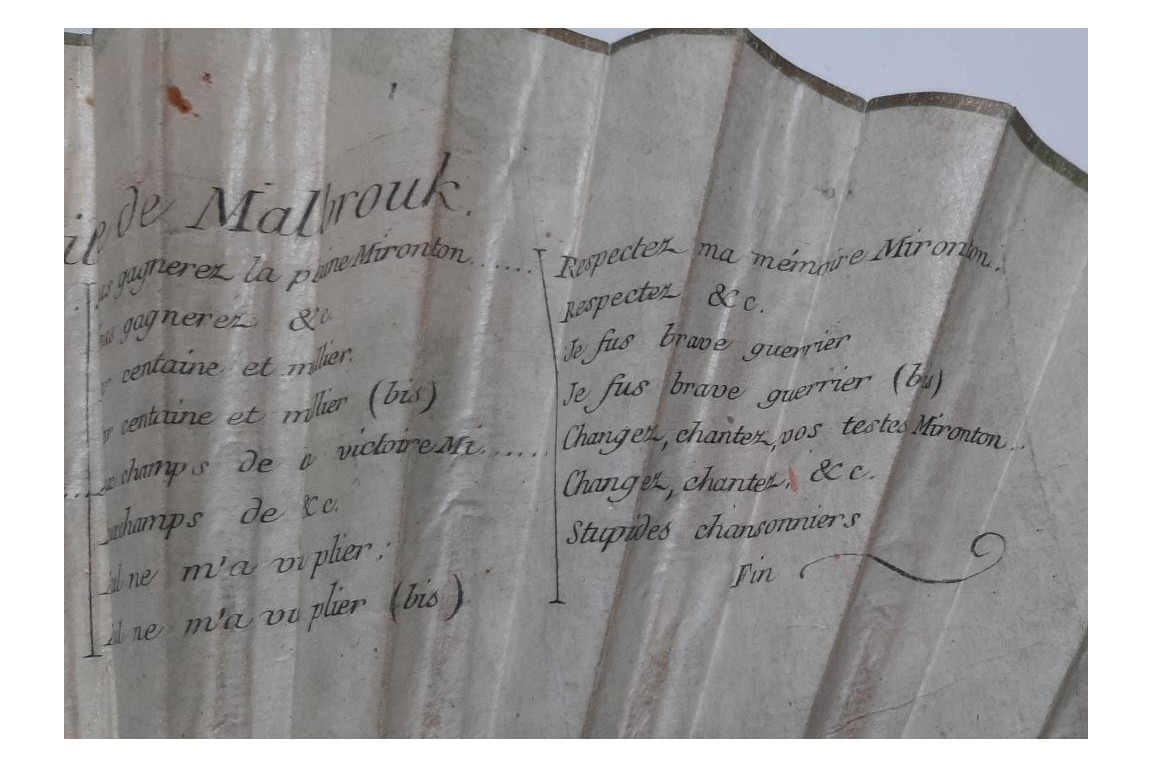 de Malbrouk.
gagnerez la plaine Mironton......
gagnerez &c.
centaine et millier.
centaine et millier (bis)
champs de victoire Mi......
champs de &c.
ne m'a vu plier:
ne m'a vu plier (bis)
Respectez ma mémoire Mironton..
Respectez &c.
Je fus brave guerrier
Je fus brave guerrier (bis)
Changez, chantez, vos testes Mironton...
Changez, chantez, &c.
Stupides chansonniers
Fin